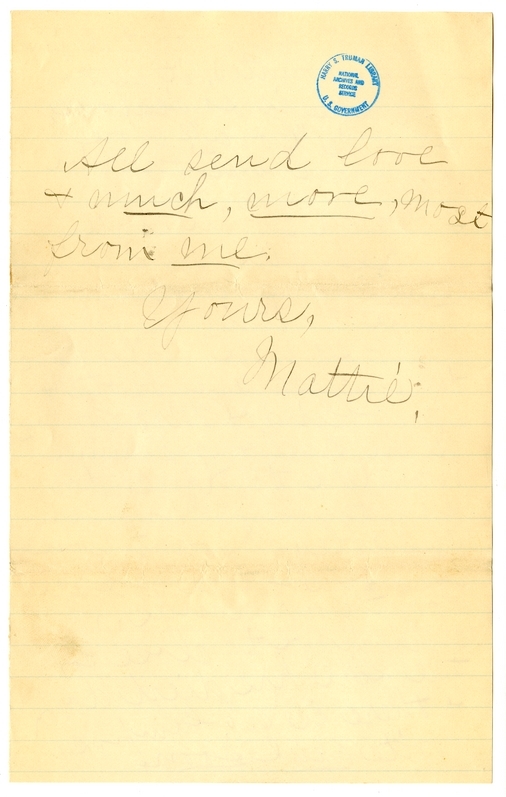 HARRY S. TRUMAN LIBRARY
NATIONAL
ARCHIVES AND
RECORDS
SERVICE
U. S. GOVERNMENT
All send love
& much, more, most
from me.
Yours,
Mattie.